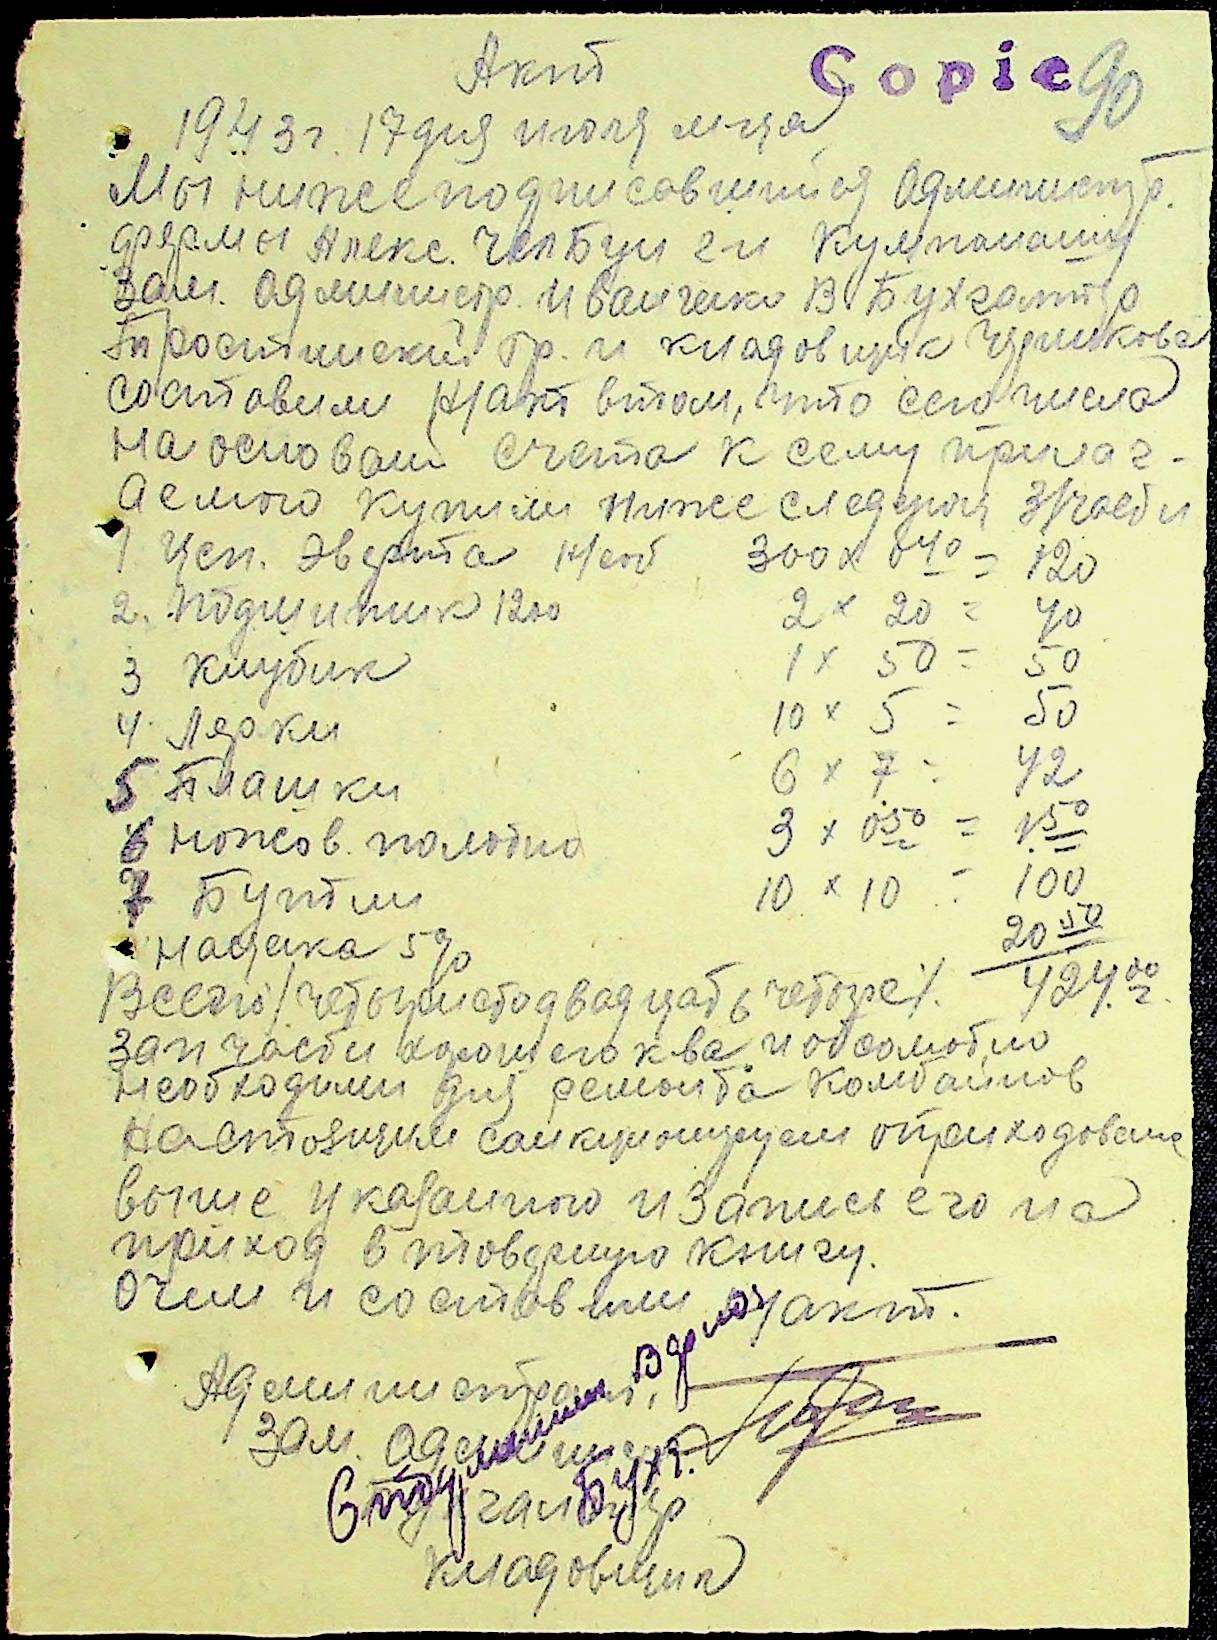 Акт
Copie 90
1943 г. 17 дня июля м-ца
Мы нижеподписавшийся Администр.
фермы Алекс. Челбун г-н
Зам. Администр. Иванченко В. Бухгалтер
Гр. и кладовщик
составили н/акт втом, что сего числа
на основаи счета к сему прилаг-
аемого купили ниже следующ З/части
1 Цеп. Эверта н/соб 300 x 0 40 = 120
2. Подшипник 1200 2 x 20 = 40
3 Клубик 1 x 50 = 50
4. Лерки 10 x 5 = 50
5 Плашки 6 x 7 = 42
6 ножов. полотно 3 x 0 50 = 1 50
7 Бутли 10 x 10 = 100
наценка 5% 20 50
Всего /четыристодвадцать четыре/. 424. 00
Запчасти хорошего к-ва и обсолютно
необходими для ремонта комбайнов
Настоящим санкционируем оприходование
выше указанного и запись его на
приход в товарную книгу.
Очем и составили н/акт.
Администрат.
Зам. Админист.
С подлинным верно
Бухг.
Бухгалтер
Кладовщик